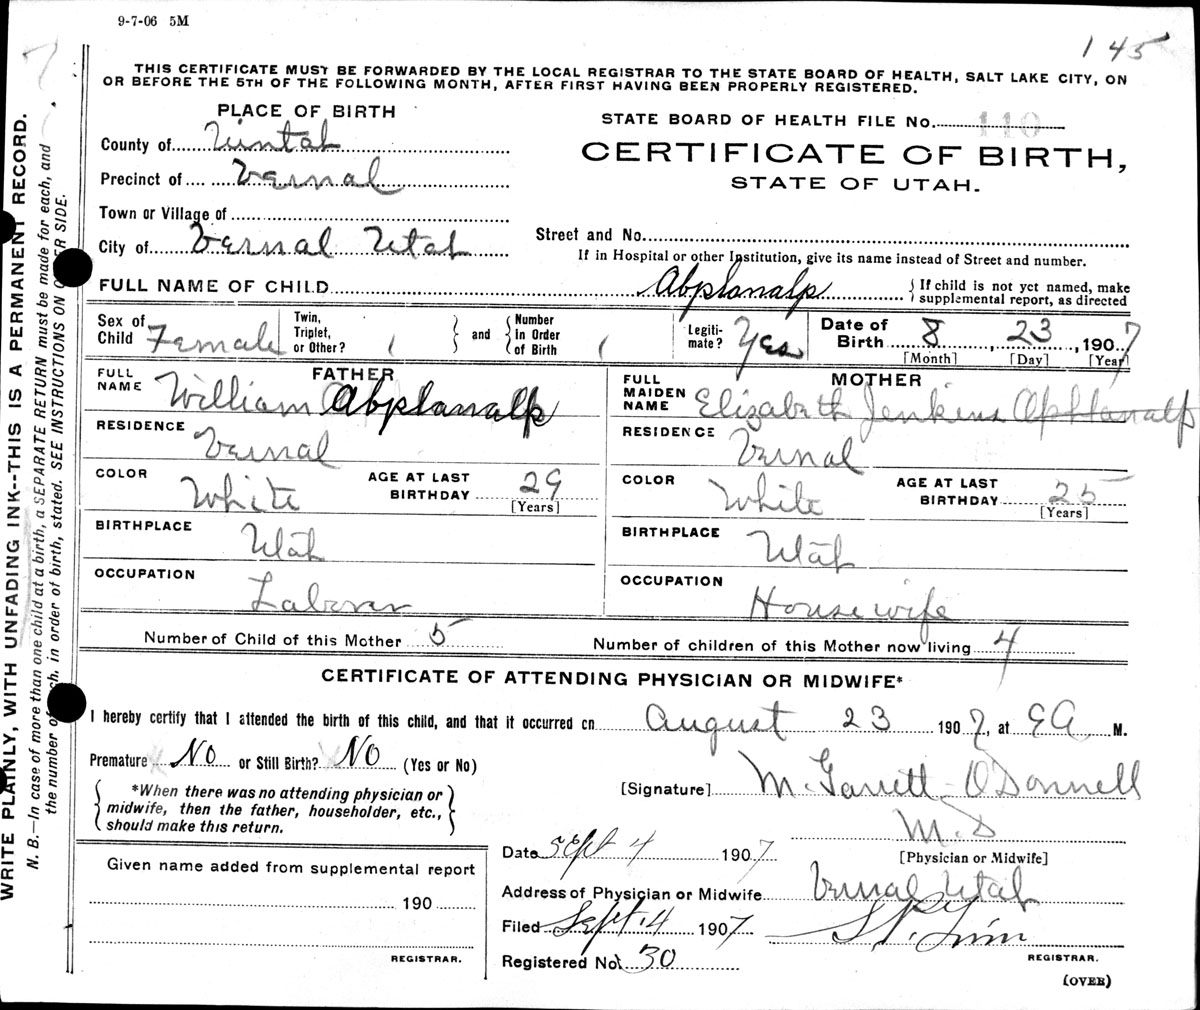 9-7-06 5M
145
THIS CERTIFICATE MUST BE FORWARDED BY THE LOCAL REGISTRAR TO THE STATE BOARD OF HEALTH, SALT LAKE CITY, ON
OR BEFORE THE 5TH OF THE FOLLOWING MONTH, AFTER FIRST HAVING BEEN PROPERLY REGISTERED.
PLACE OF BIRTH
County of Uintah
Precinct of Vernal
Town or Village of
City of Vernal Utah
STATE BOARD OF HEALTH FILE No. 110
CERTIFICATE OF BIRTH,
STATE OF UTAH.
Street and No.
If in Hospital or other Institution, give its name instead of Street and number.
FULL NAME OF CHILD Abplanalp
{If child is not yet named, make
supplemental report, as directed
Sex of Child Female
Twin, Triplet, or Other? 1
and
Number In Order of Birth 1
Legiti-mate? Yes
Date of Birth 8, 23, 1907
[Month] [Day] [Year]
FATHER
FULL NAME William Abplanalp
RESIDENCE Vernal
COLOR White
AGE AT LAST BIRTHDAY 29
[Years]
BIRTHPLACE Utah
OCCUPATION Laborer
MOTHER
FULL MAIDEN NAME Elizabeth Jenkins Aphlanalp
RESIDENCE Vernal
COLOR White
AGE AT LAST BIRTHDAY 25
[Years]
BIRTHPLACE Utah
OCCUPATION Housewife
Number of Child of this Mother 5
Number of children of this Mother now living 4
CERTIFICATE OF ATTENDING PHYSICIAN OR MIDWIFE*
I hereby certify that I attended the birth of this child, and that it occurred on August 23 1907, at 9 A M.
Premature No or Still Birth? No (Yes or No)
*When there was no attending physician or
midwife, then the father, householder, etc.,
should make this return.
[Signature] M. Garrett-O'Donnell
M.D
[Physician or Midwife]
Date Sept 4 1907
Address of Physician or Midwife Vernal Utah
Filed Sept. 4 1907
REGISTRAR.
Registered No. 30
(OVER)
Given name added from supplemental report
190
REGISTRAR.
WRITE PLAINLY, WITH UNFADING INK--THIS IS A PERMANENT RECORD.
N. B.—In case of more than one child at a birth, a SEPARATE RETURN must be made for each, and
the number of each, in order of birth, stated. SEE INSTRUCTIONS ON OTHER SIDE.